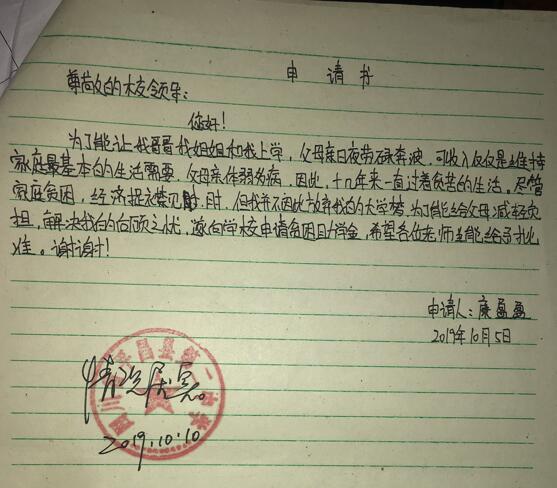 申请书
尊敬的校领导:
您好!
为了能让我哥哥我姐姐和我上学,父母亲日夜劳碌奔波,可收入仅仅是维持
家庭最基本的生活需要,父母亲体弱多病,因此,十几年来一直过着贫苦的生活,尽管
家庭贫困,经济捉襟见肘,但我并不因此放弃我的大学梦,为了能给父母减轻负
担,解决我的后顾之忧,激向学校申请贫困助学金,希望各位老师能给予批
准。谢谢!
申请人:康盈盈
2019年10月5日
情况属实。
2019.10.10